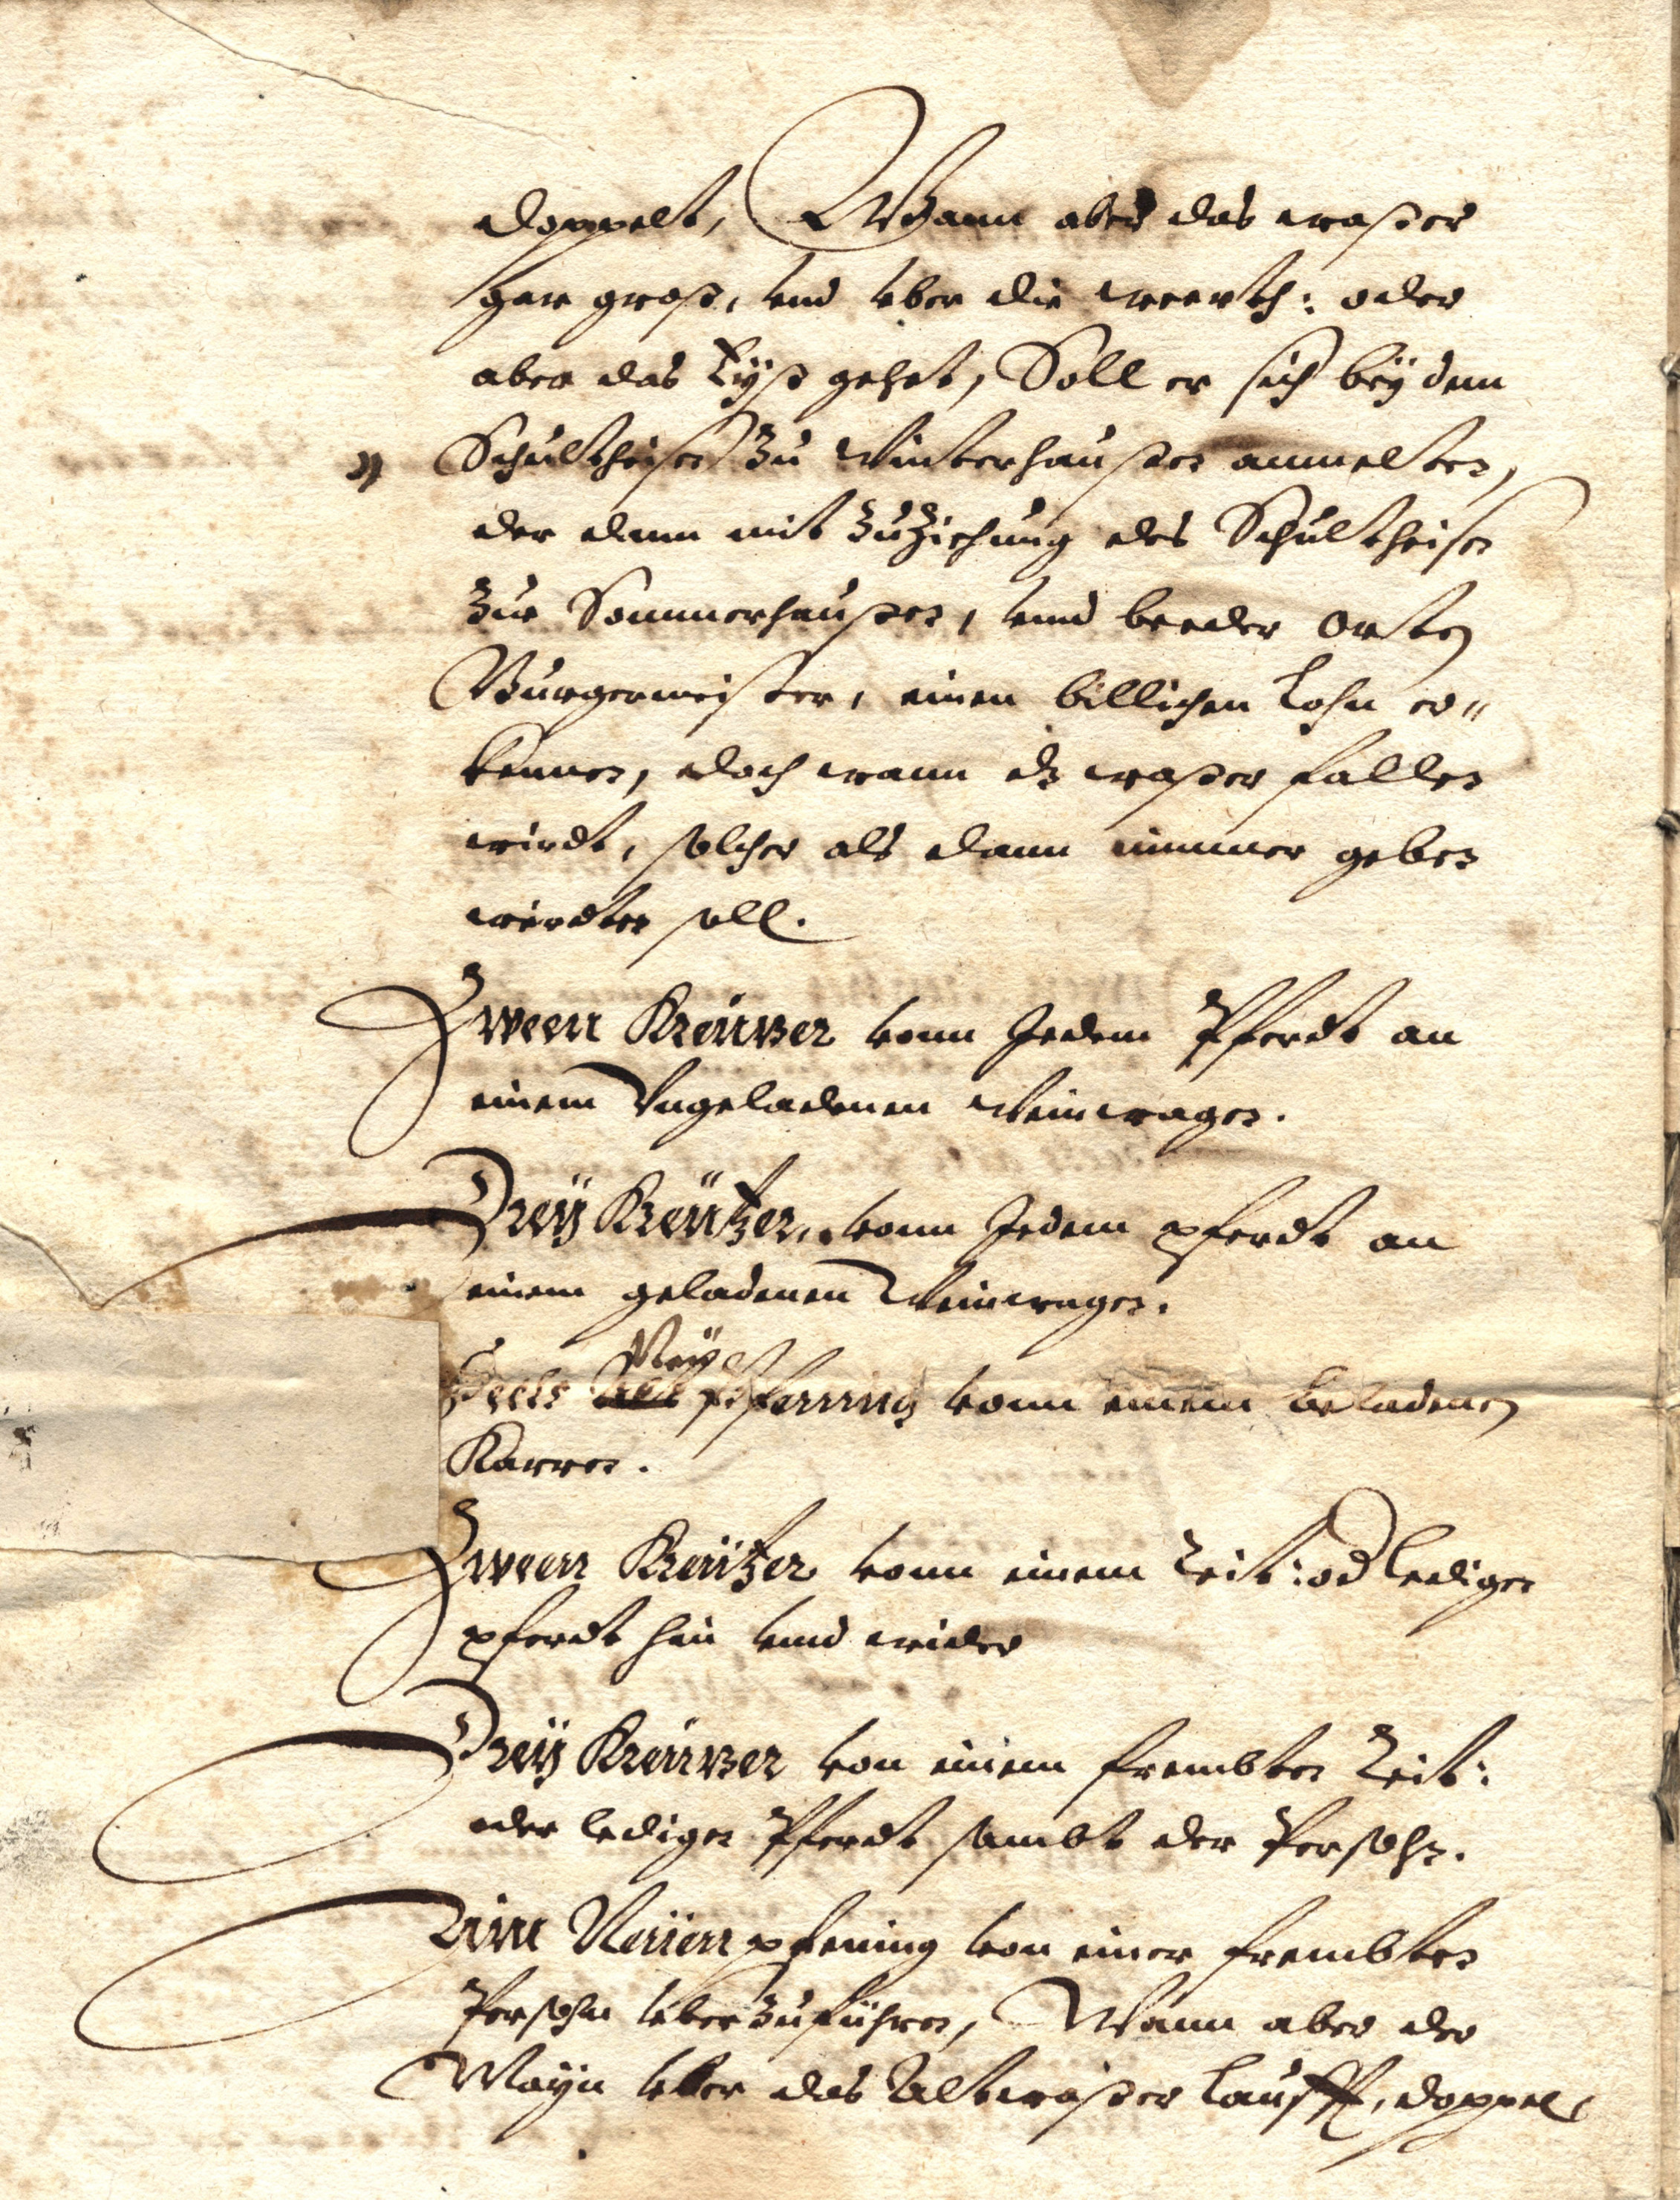 doppelt, Wann aber das waßer
gar groß, vnd vber die weerth: oder
aber das Eyß gehet, Soll er sich bey dem
Schultheisen zu Winterhaußen anmelten,
der dann mit Zuziehung des Schultheisen
zue Sommerhaußen, vnnd beeder Orten
Burgermeister, einen billichen Lohn er„
kennen, doch wann dz waßer fallen
wirdt, solcher als dann nimmer geben
werdten soll.
Zween Kreützer vonn Jedem Pferdt an
einem Vngeladenen Weinwagen.
Dreÿ Kreützer, vonn Jedem pferdt an
einem geladenen Weinwagen.
Neÿ
pfenning vonn einem beladenen
Karren.
Zween Kreützer vonn einem Reit: od ledigen
pferdt hin vnnd wider
Dreÿ Kreützer von einem frembten Reit:
oder ledigen Pferdt sambt der Persohn.
Ein Neüen pfening von einer frembten
Persohn vberzuführen, Wann aber der
Mayn vber das Altwaßer laufft, doppel